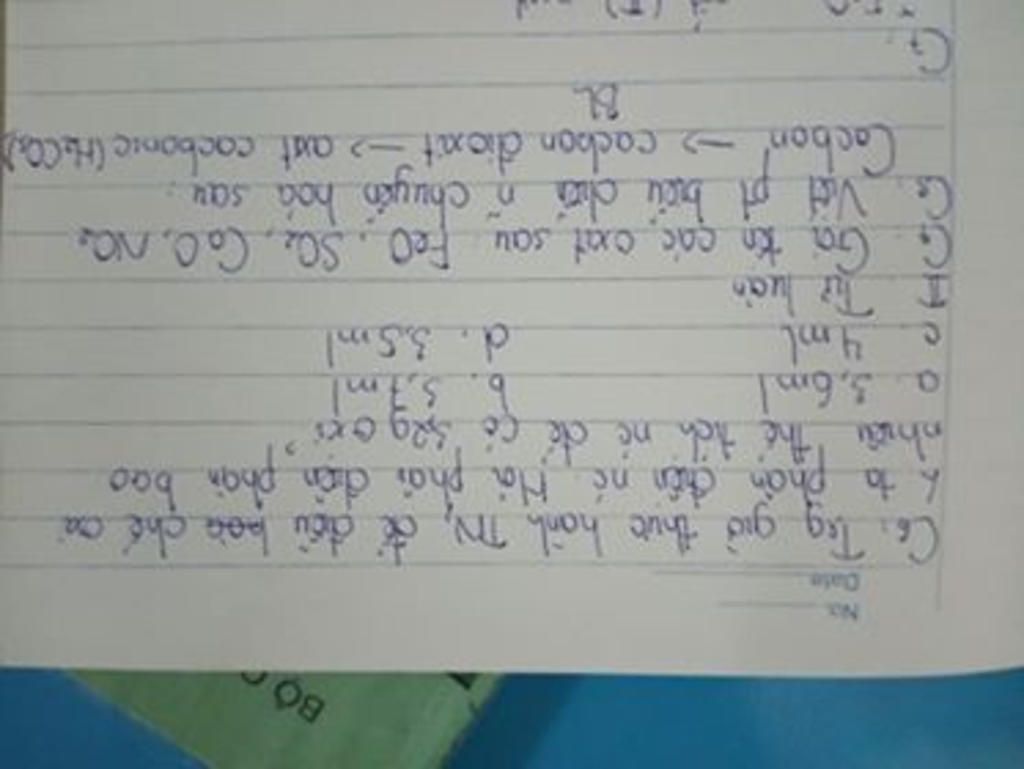 No.
Date
C6. Trg giờ thực hành TN, để điều chế oxi
ta phân điện nc. Hỏi phải điện phân bao
nhiêu thể tích nc để có 3,2g oxi
a. 3,6ml b. 3,7ml
c. 4ml d. 3,5ml
II Tự luận
Gọi tên các oxit sau: FeO, SO2, CaO, NO2
Viết pt biểu diễn ~ chuyển hoá sau:
Cacbon -> cacbon dioxit -> axit cacbonic (H2CO3)
BL
BỘ